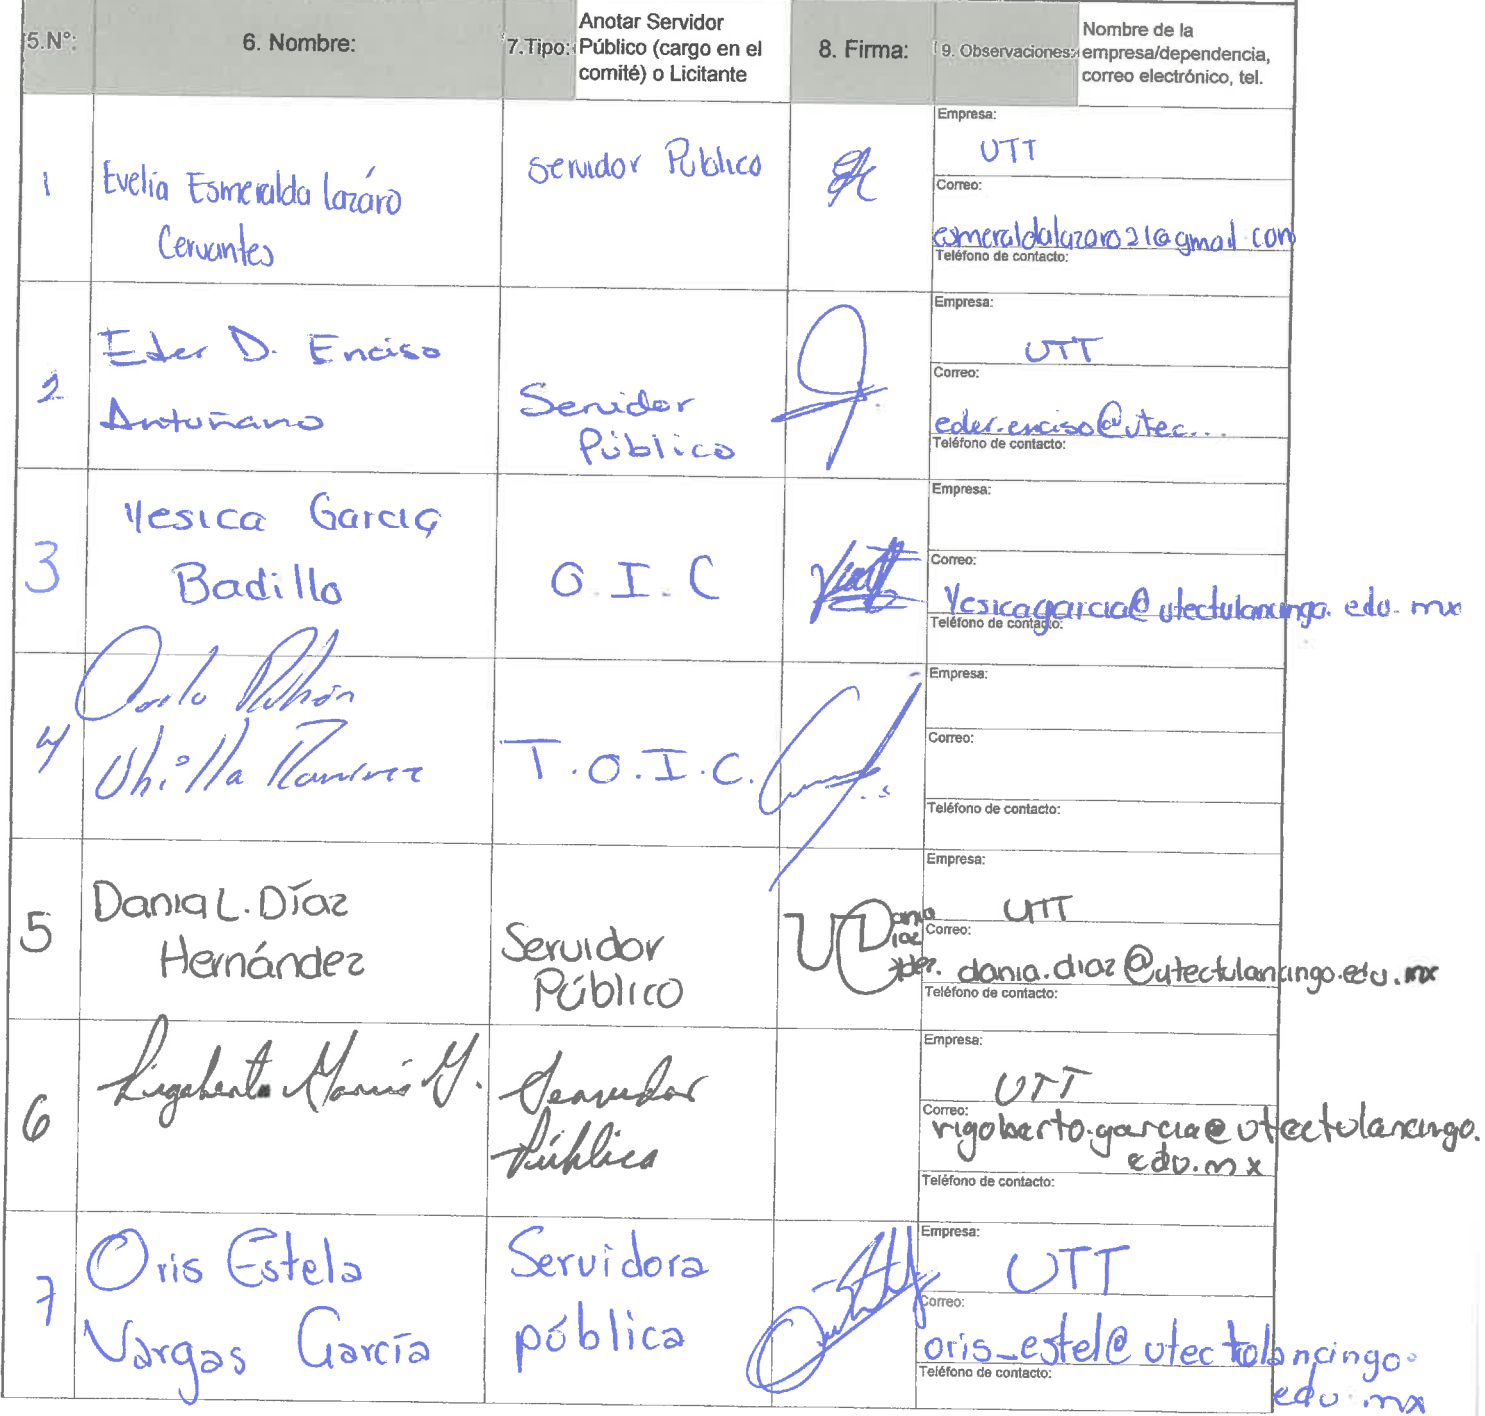 5.N°:
6. Nombre:
7.Tipo:
Anotar Servidor
Público (cargo en el
comité) o Licitante
8. Firma:
9. Observaciones:
Nombre de la
empresa/dependencia,
correo electrónico, tel.
1
Evelia Esmeralda Lazáro
Cervantes
Servidor Público
Empresa:
UTT
Correo:
esmeraldalazaro21@gmail.com
Teléfono de contacto:
2
Eder D. Enciso
Antuñano
Servidor
Público
Empresa:
UTT
Correo:
eder.enciso@utec...
Teléfono de contacto:
3
Yesica García
Badillo
O.I.C
Empresa:
Correo:
Yesicagarcia@utectulancingo.edu.mx
Teléfono de contacto:
4
Ramírez
T.O.I.C.
Empresa:
Correo:
Teléfono de contacto:
5
Dania L. Díaz
Hernández
Servidor
Público
Dania
Díaz
Hdez.
Empresa:
UTT
Correo:
dania.diaz@utectulancingo.edu.mx
Teléfono de contacto:
6
Rigoberto
Servidor
Público
Empresa:
UTT
Correo:
rigoberto.garcia@utectulancingo.
edu.mx
Teléfono de contacto:
7
Oris Estela
Vargas García
Servidora
pública
Empresa:
UTT
Correo:
oris_estel@utectulancingo.
edu.mx
Teléfono de contacto: